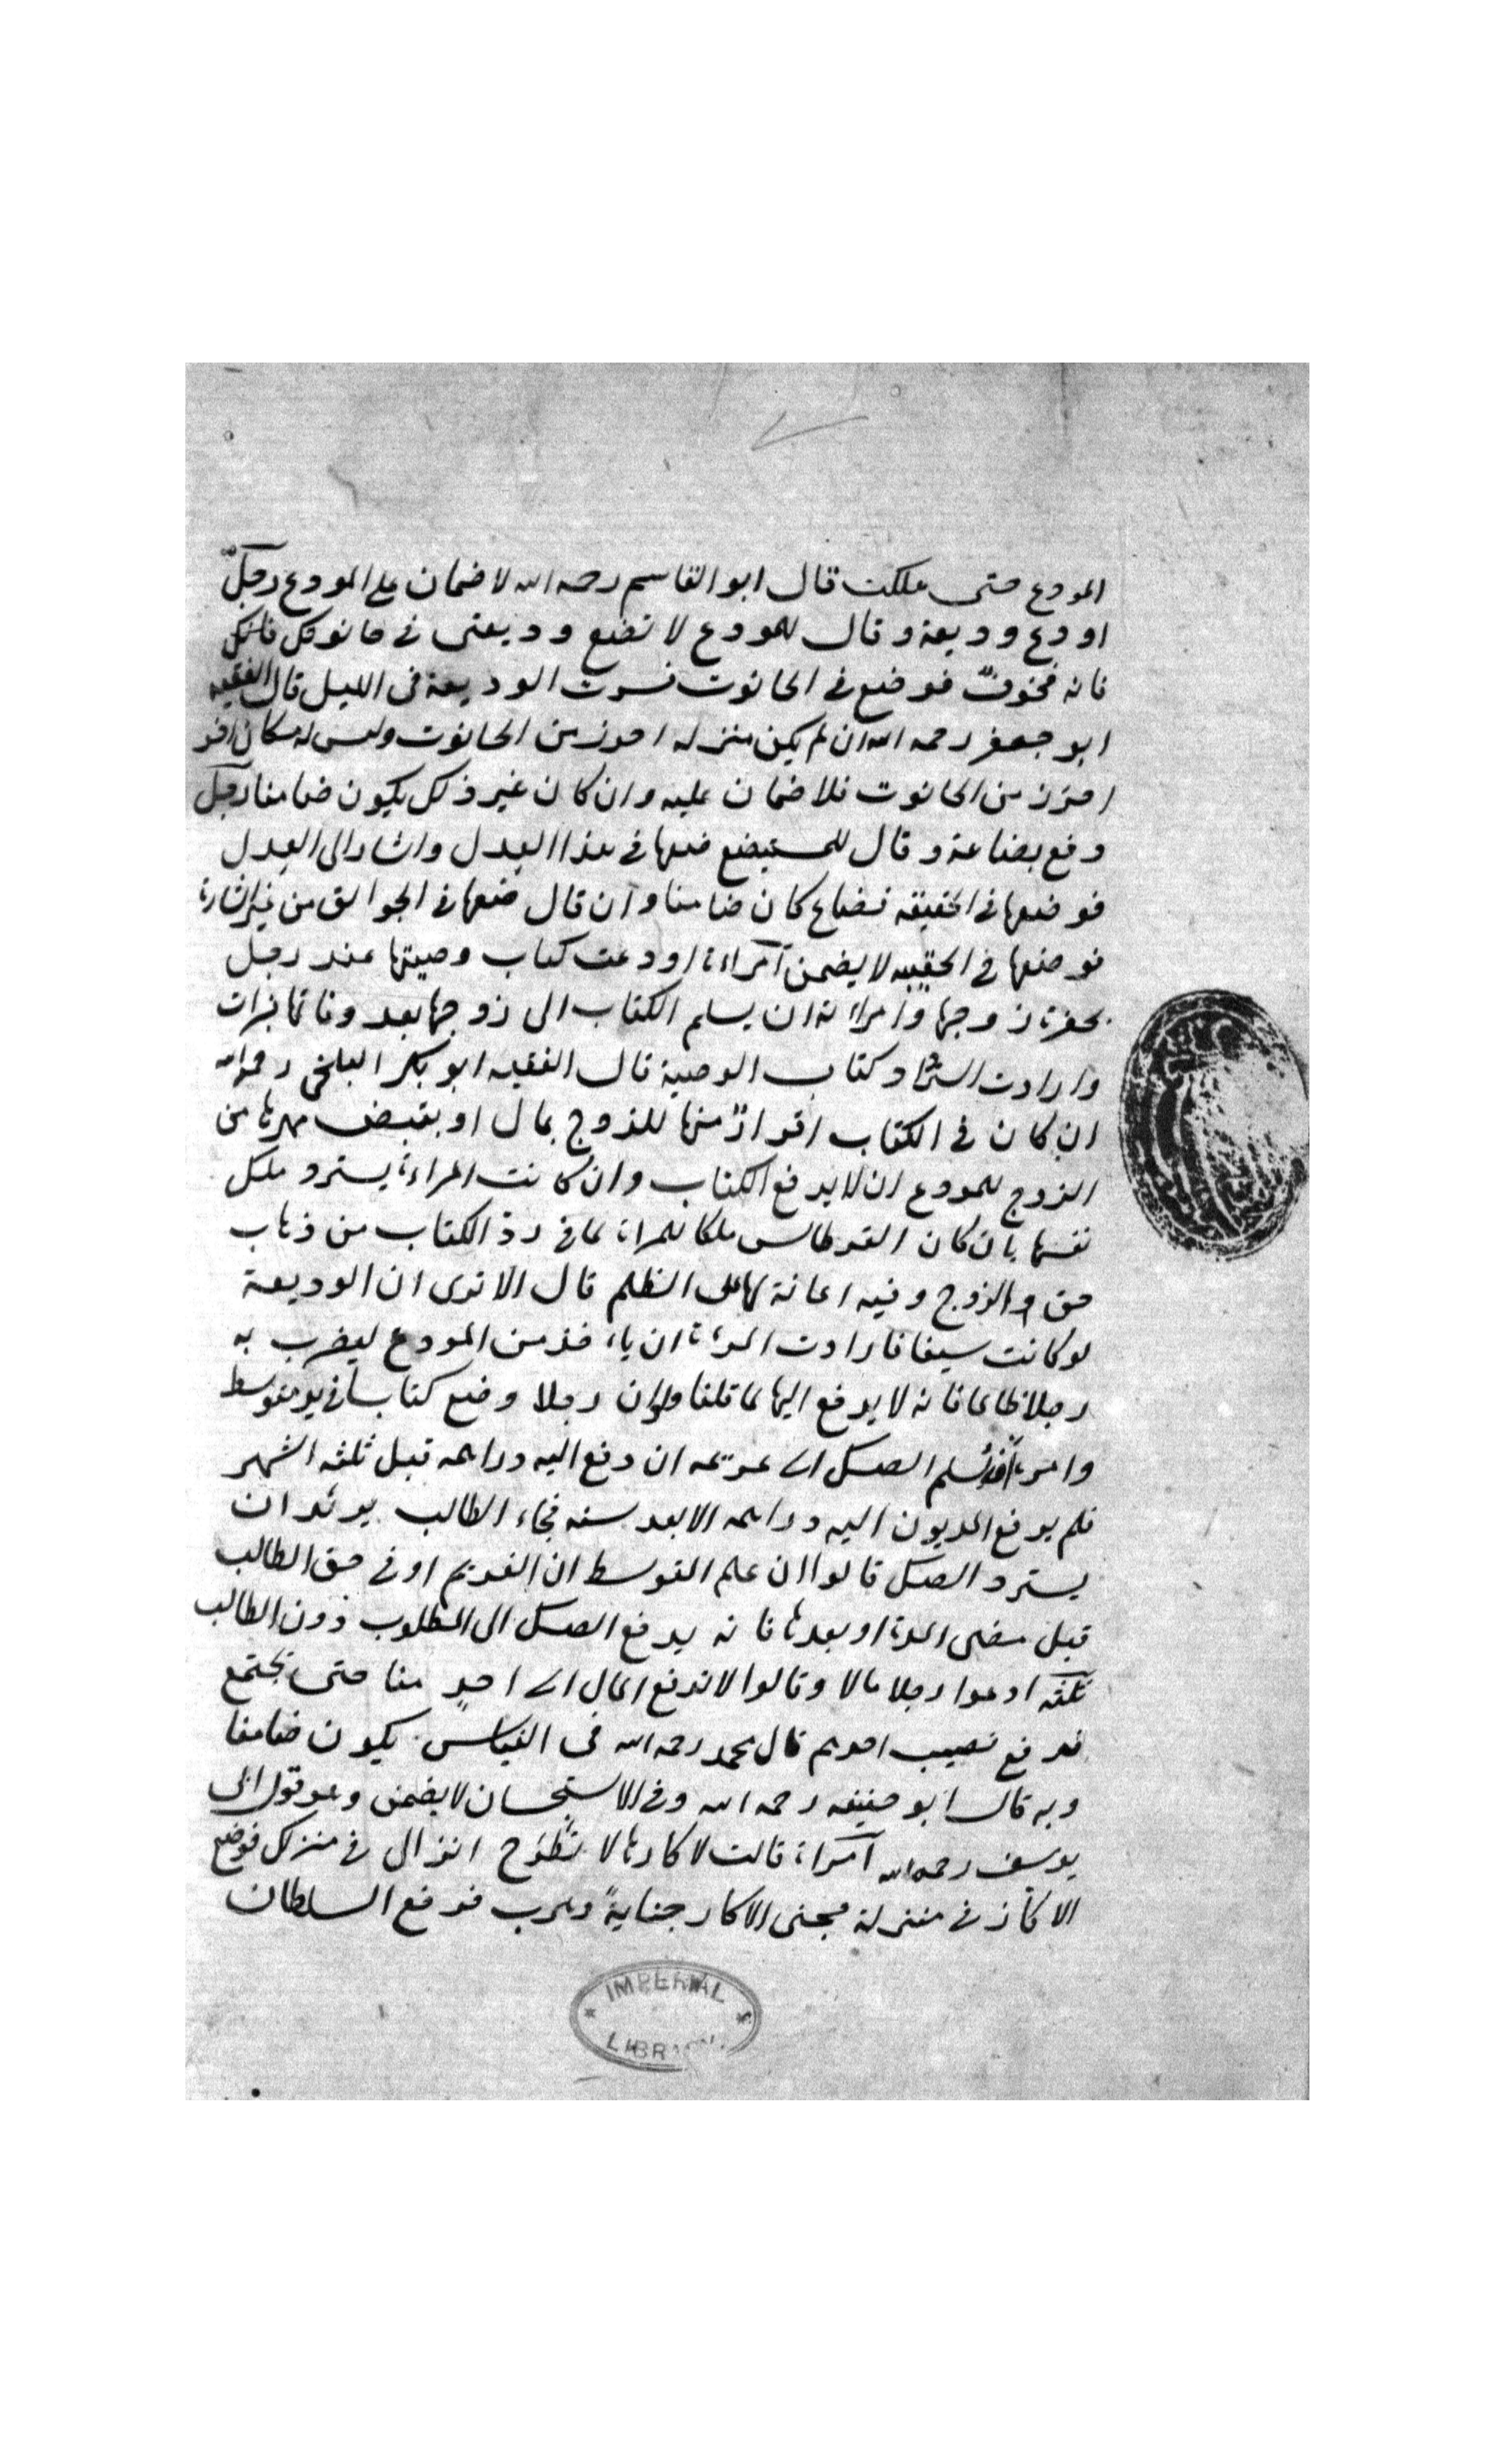 المودع حتى هلكت قال ابو القاسم رحمه الله لا ضمان على المودع رجل
اودع وديعة وقال للمودع لا تضع وديعتى فى حانوتك فانك
فانه مخوف فوضع فى الحانوت فسرت الوديعة فى الليل قال الفقيه
ابو جعفر رحمه الله ان لم يكن منزله احرز من الحانوت وليس له مكان اخر
احرز من الحانوت فلا ضمان عليه وان كان غير ذلك يكون ضامنا رجل
دفع بضاعة وقال للمستبضع ضعها فى هذا العدل واشار الى العدل
فوضعها فى الحقيقه فضاع كان ضامنا وان قال ضعها فى الجوالق من غير اشارة
فوضعها فى الحقيبه لا يضمن امراءة اودعت كتاب وصيتها عند رجل
بحضرة زوجها وامراته ان يسلم الكتاب الى زوجها بعد وفاتها فبرات
وارادت استرداد كتاب الوصية قال الفقيه ابو بكر البلخى رحمه الله
ان كان فى الكتاب اقرارٌ منها للزوج بمال او بقبض مهرها من
الزوج للمودع ان لا يدفع الكتاب وان كانت المراءة يسترد ملك
نفسها بان كان القرطاس ملكا للمراة لما فى رد الكتاب من ذهاب
حق الزوج وفيه اعانة لها على الظلم قال الا ترى ان الوديعة
لو كانت سيفا فارادت المراة ان ياخذ من المودع ليضرب به
رجلا ظالما فانه لا يدفع اليها لما قلنا ولو ان رجلا وضع كتابا فى يد متوسط
وامره ان يسلم الصك الى غريمه ان دفع اليه دراهمه قبل ثلثه اشهر
فلم يدفع المديون اليه دراهمه الا بعد سنه فجاء الطالب يريد ان
يسترد الصك قالوا ان علم المتوسط ان الغريم اوفى حق الطالب
قبل مضى المدة او بعدها فانه يدفع الصك الى المطلوب دون الطالب
ثلثه ادعوا رجلا مالا وقالوا لا تدفع المال الى احدٍ منا حتى نجتمع
فدفع نصيب احدهم قال محمد رحمه الله فى القياس يكون ضامنا
وبه قال ابو حنيفه رحمه الله وفى الاستحسان لا يضمن وهو قول ابى
يوسف رحمه الله امراة قالت لاكارها لا تطرح انزالى فى منزلك فوضع
الاكار فى منزله فجنى الاكار جنايةً وهرب فرفع السلطان
IMPERIAL
LIBR